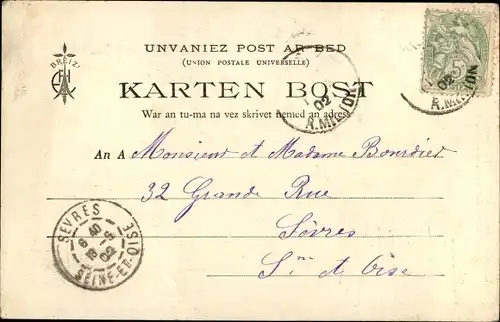 BREIZ
UNVANIEZ POST AR BED
(UNION POSTALE UNIVERSELLE)
KARTEN BOST
War an tu-ma na vez skrivet nemed an adress
AN A Monsieur et Madame Bourdier
32 Grande Rue
Sèvres
S.ne et Oise
5
02
R. MILTON
02
R. MILTON
SEVRES
6 40
18 -5
02
SEINE-ET-OISE